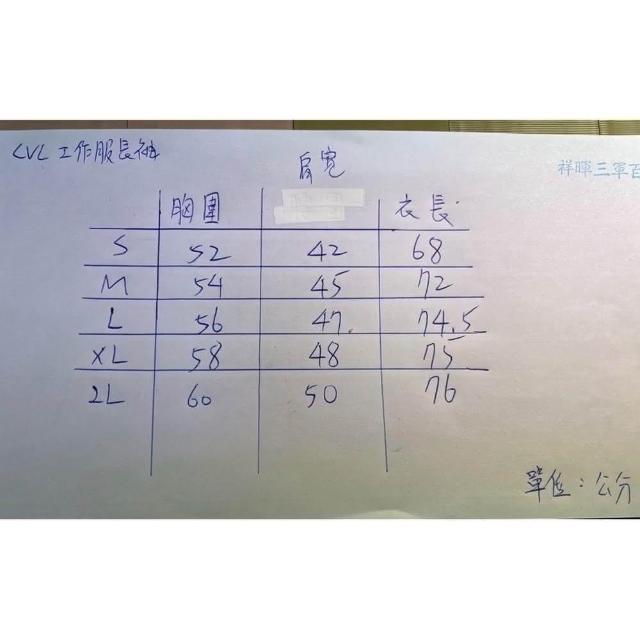 LVL 工作服長袖
祥暉三軍百
肩寬
胸圍 衣長
S 52 42 68
M 54 45 72
L 56 47. 74.5
XL 58 48 75
2L 60 50 76
單位：公分